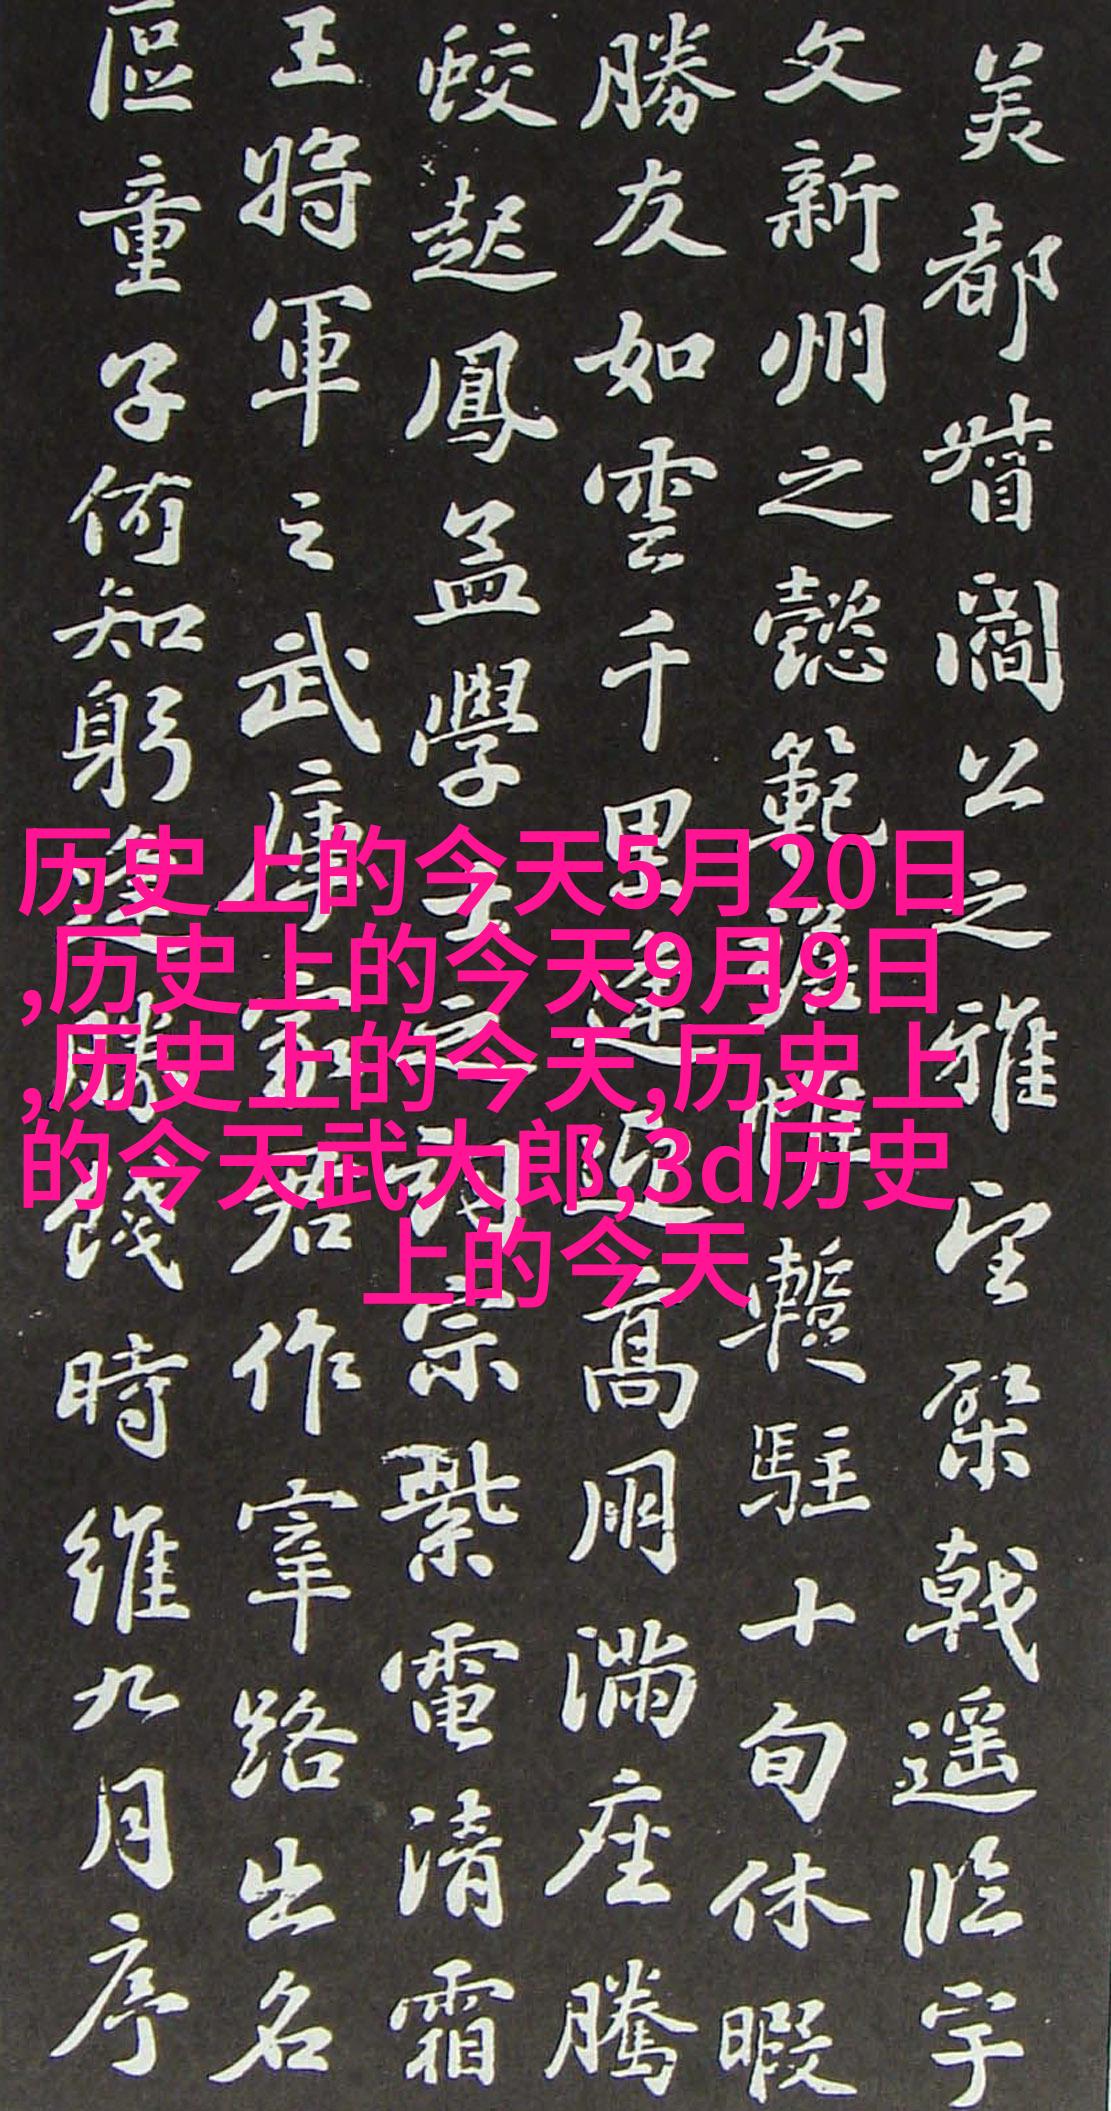 美都督閻公之雅望棨戟遥临宇
文新州之懿範襜惟蹔駐十旬休暇
勝友如雲千里逢迎高朋满座腾
蛟起鳳孟學士之词宗紫電清霜
王将軍之武庫家君作宰路出名
區童子何知躬逢勝餞時維九月序
历史上的今天5月20日
,历史上的今天9月9日
,历史上的今天,历史上
的今天武大郎,3d历史
上的今天